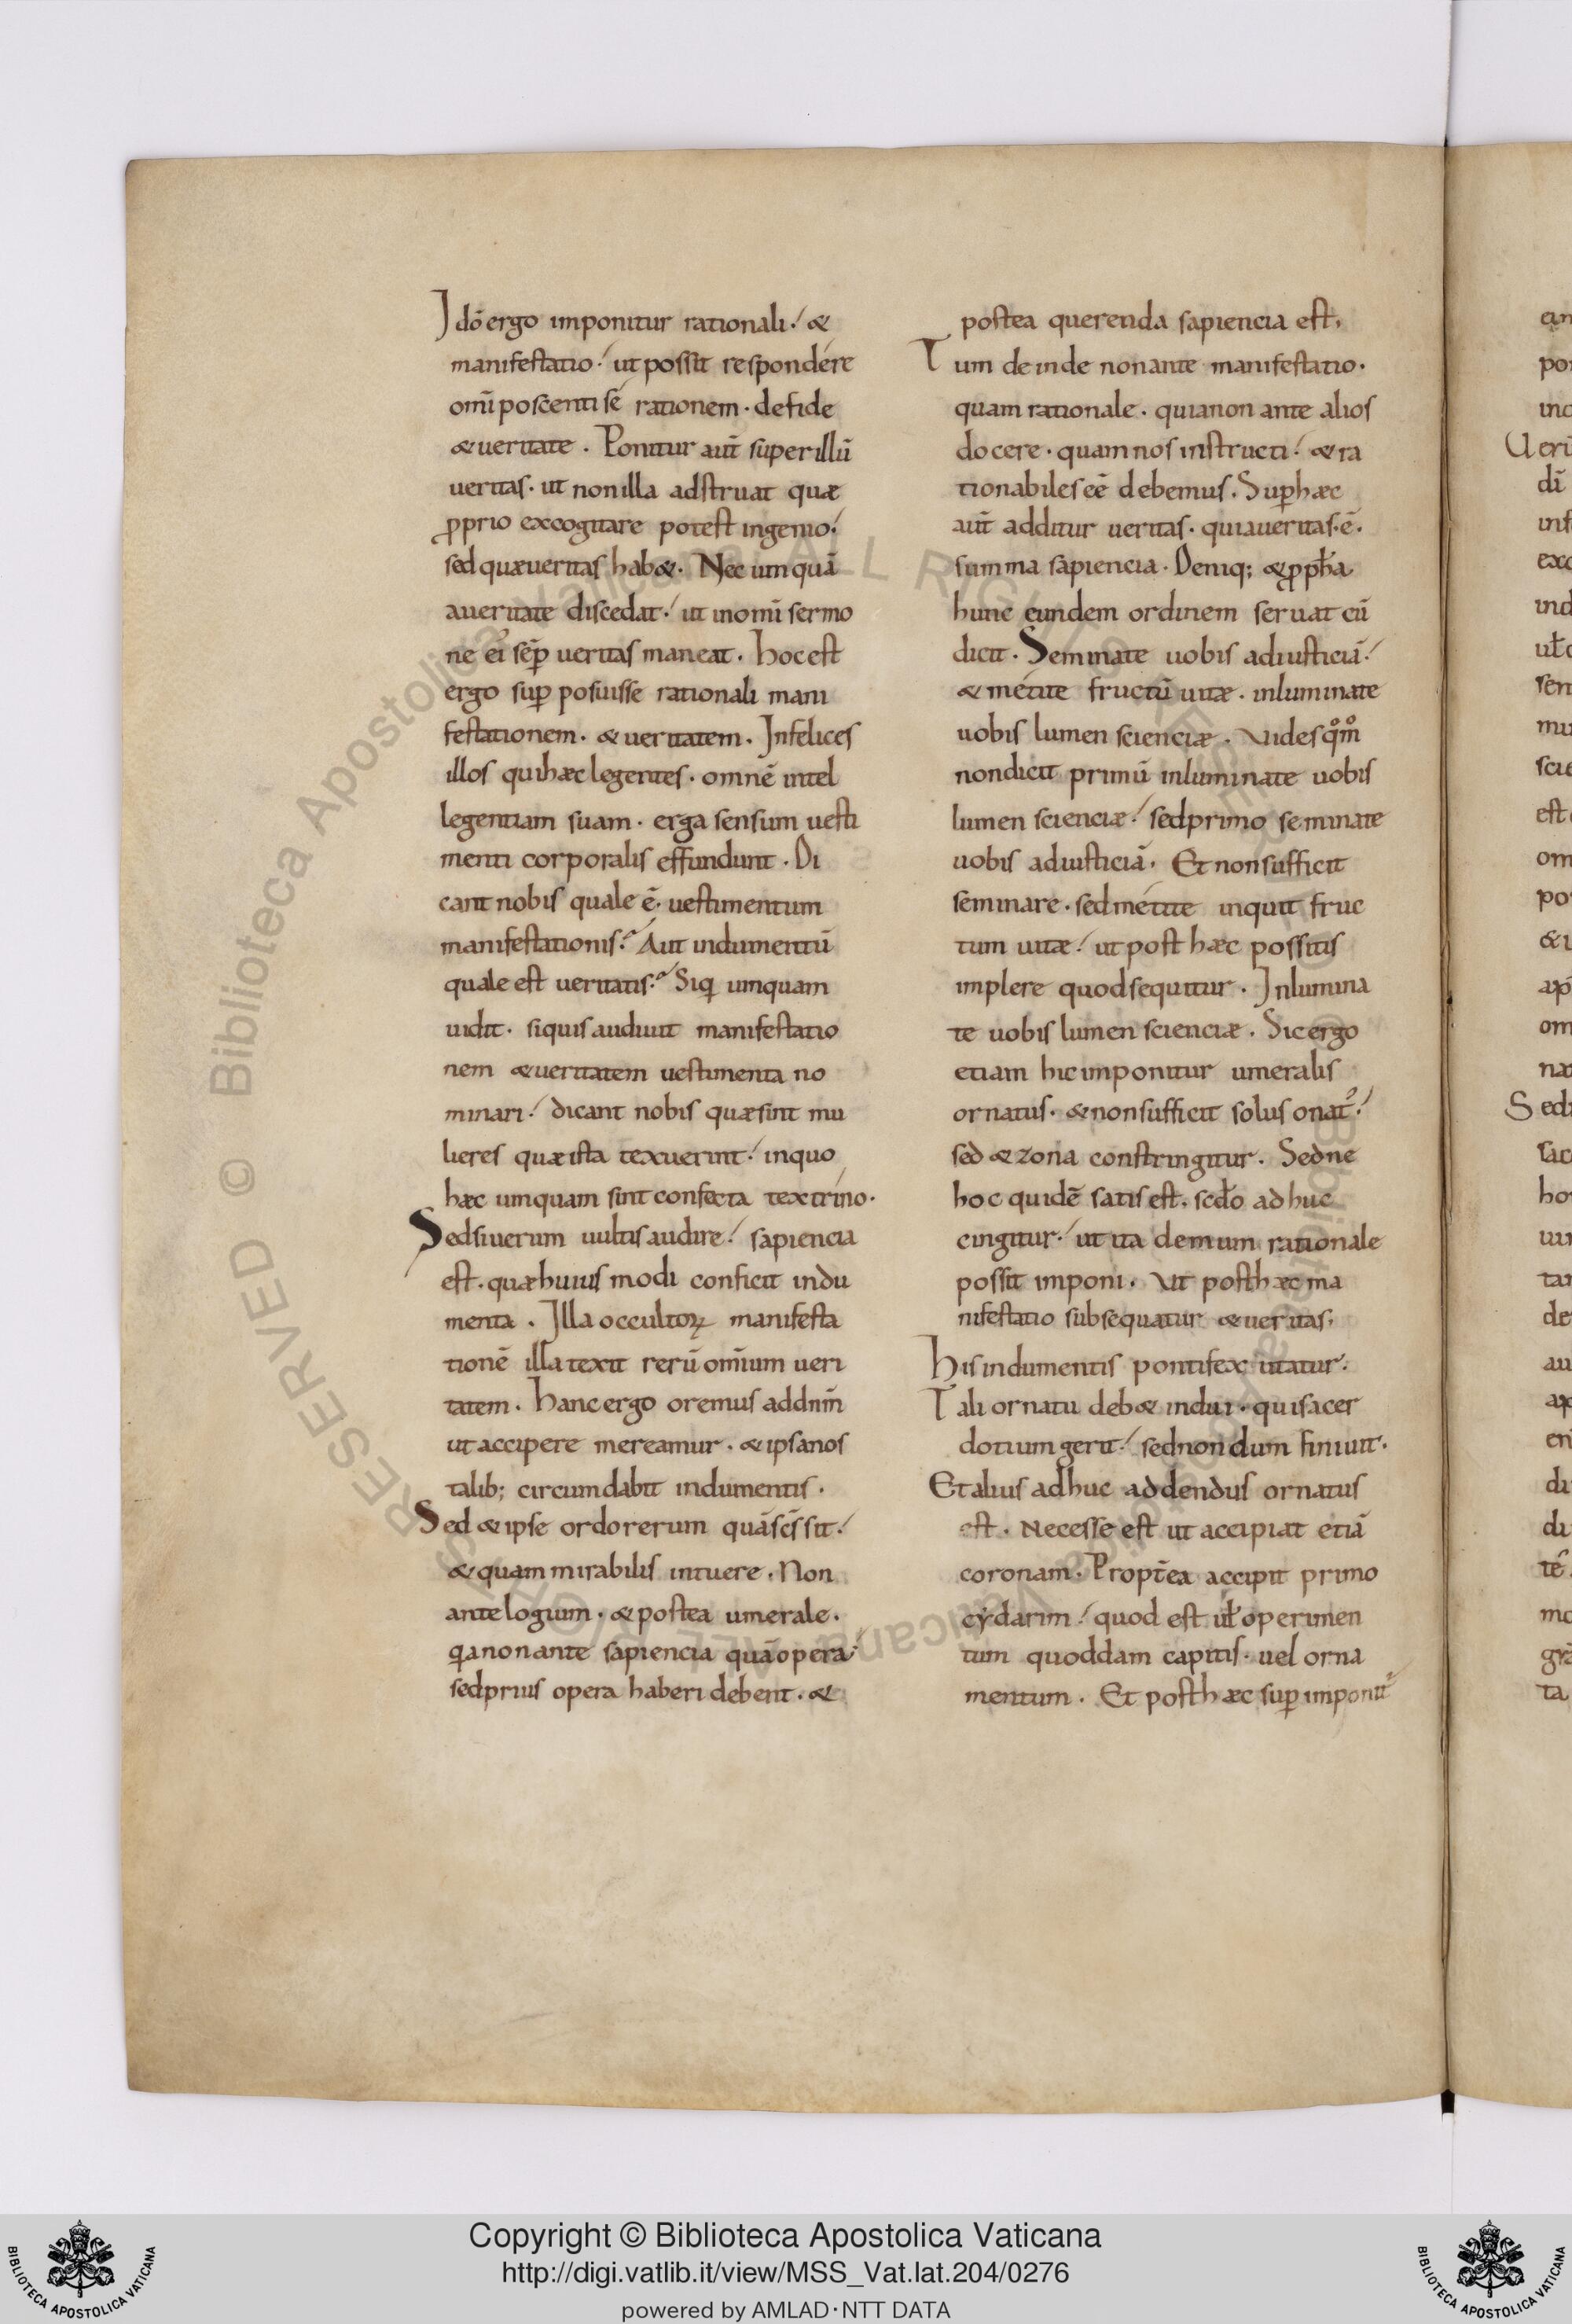 Idõ ergo imponitur rationali. &
manifestatio. ut possit respondére
omĩ poscenti sé rationem. de fide
& veritate. Ponitur aut̃ super illũ
veritas. ut non illa adstruat quæ
ꝓprio excogitare potest ingenio.
sed quæ veritas hab&. Nec umquã
a veritate discedat. ut in omĩ sermo
ne ei sẽp veritas maneat. Hoc est
ergo suꝑ posuisse rationali mani
festationem. & veritatem. Infelices
illos qui hæc legentes. omnẽ intel
legentiam suam. erga sensum vesti
menti corporalis effundunt. Di
cant nobis quale ẽ. vestimentum
manifestationis? Aut indumentũ
quale est veritatis? Siq̃ umquam
vidit. siquis audivit manifestatio
nem & veritatem vestimenta no
minari. dicant nobis quæ sint mu
lieres quæ ista texuerint. in quo
hæc umquam sint confecta textríno.
Sed si verum vultis audire. sapiencia
est. quæ huius modi conficit indu
menta. Illa occultoꝝ manifesta
tionẽ illa texit rerũ om̃ium veri
tatem. Hanc ergo oremus ad dnm̃
ut accipere mereamur. & ipsa nos
talib; circumdabit indumentis.
Sed & ipse ordo rerum quã sc̃s sit.
& quam mirabilis intuere. Non
ante logium. & postea umerale.
q̃a non ante sapiencia quã opera
sed prius opera haberi debent. &
postea querenda sapiencia est.
Tum deinde non ante manifestatio.
quam rationale. quia non ante alios
docere. quam nos instructi. & ra
tionabiles eẽ debemus. Suꝑ hæc
aut̃ additur veritas. quia veritas. ẽ.
summa sapiencia. Deniq; & ꝓpħa
hunc eundem ordinem servat cũ
dicit. Seminate vobis ad iusticiã.
& métite fructũ vitæ. inluminate
vobis lumen scienciæ. Vides qͦmͦ
non dicit primũ inluminate vobis
lumen scienciæ. sed primo seminate
vobis ad iusticiã. Et non sufficit
seminare. sed métite inquit fruc
tum vitæ. ut post hæc possitis
implere quod sequitur. Inlumina
te vobis lumen scienciæ. Sic ergo
etiam hic imponitur umeralis
ornatus. & non sufficit solus onat᷒.
sed & zona constringitur. Sed ne
hoc quidẽ satis est. scđo adhuc
cingitur. ut ita demum rationale
possit imponi. Ut post hæc ma
nifestatio subsequatur & veritas.
His indumentis pontifex utatur.
Tali ornatu deb& indui. qui sacer
dotium gerit. sed nondum finiuit.
Et alius adhuc addendus ornatus
est. Necesse est ut accipiat etiã
coronam. Propt̃ea accipit primo
cẏdarim. quod est uł operimen
tum quoddam capitis. vel orna
mentum. Et post hæc suꝑ imponit᷒
Copyright © Biblioteca Apostolica Vaticana
http://digi.vatlib.it/view/MSS_Vat.lat.204/0276
powered by AMLAD·NTT DATA
BIBLIOTECA APOSTOLICA VATICANA
BIBLIOTECA APOSTOLICA VATICANA